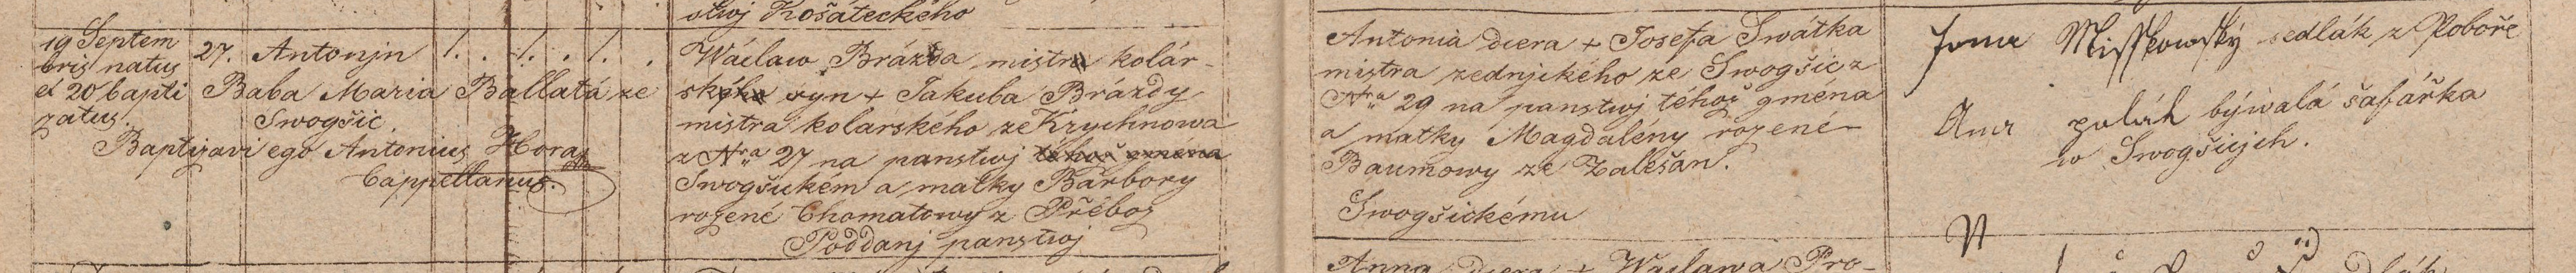 stwj Košáteckého
19 Septem
bris natus
et 20 bapti
zatus.
27. Antonjn 1. . 1. . 1. .
Baba Maria Ballatá ze
Swogšic.
Baptizavi ego Antonius Hora
Cappellanus.
Wáclaw Brázda, mistr kolár-
ský syn + Jakuba Brázdy,
mistra kolarského ze Krychnowa
z Nra 27 na panstwj téhož gmena
Swogšickém a matky Barbory
rozené Chomatowy z Přeboz
Poddanj panstwj
Antonia dcera + Josefa Swátka
mistra zednjckého ze Swogšic z
Nra 29 na panstwj téhož gména
a matky Magdalény rozené
Baumowy ze Zalešan.
Swogšickému
Anna dcera + Waclawa Pro-
Misskowský sedlák z Poboře
býwalá šafářka
w Swogšicjch.